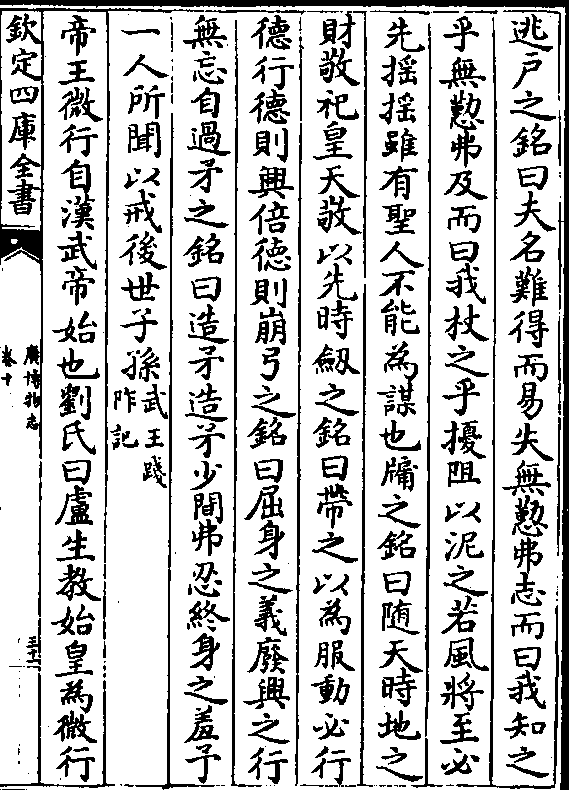 逃户之銘曰夫名難得而易失無懃弗志而曰我知之
乎無懃弗及而曰我杖之乎擾阻以泥之若風將至必
先摇摇雖有聖人不能為謀也牖之銘曰随天時地之
財敬祀皇天敬以先時劔之銘曰帶之以為服動必行
德行德則興倍德則崩弓之銘曰屈身之義廢興之行
無忘自過矛之銘曰造矛造矛少間弗忍終身之羞予
一人所聞以戒後世子孫武王踐阼記
帝王微行自漢武帝始也劉氏曰盧生教始皇為微行
欽定四庫全書
廣博物志
卷十
三十二